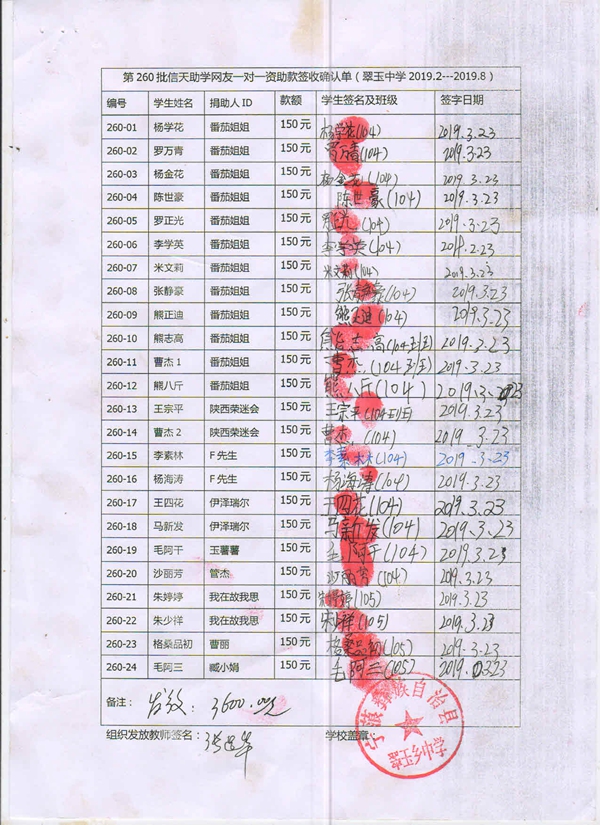 第 260 批信天助学网友一对一资助款签收确认单（翠玉中学 2019.2---2019.8）
编号 学生姓名 捐助人 ID 款额 学生签名及班级 签字日期
260-01 杨学花 番茄姐姐 150 元 杨学花(104) 2019.3.23
260-02 罗万青 番茄姐姐 150 元 罗万青(104) 2019.3.23
260-03 杨金花 番茄姐姐 150 元 杨金花(104) 2019.3.23
260-04 陈世豪 番茄姐姐 150 元 陈世豪(104) 2019.3.23
260-05 罗正光 番茄姐姐 150 元 (104) 2019.3.23
260-06 李学英 番茄姐姐 150 元 李学英(104) 2019.2.23
260-07 米文莉 番茄姐姐 150 元 米文莉(104) 2019.3.23
260-08 张静豪 番茄姐姐 150 元 张静豪(104) 2019.3.23
260-09 熊正迪 番茄姐姐 150 元 熊正迪(104) 2019.3.23
260-10 熊志高 番茄姐姐 150 元 熊志高(104班) 2019.3.23
260-11 曹杰 1 番茄姐姐 150 元 曹杰(104班) 2019.3.23
260-12 熊八斤 番茄姐姐 150 元 熊八斤(104) 2019.3.23
260-13 王宗平 陕西荣迷会 150元 王宗平(104班) 2019.3.23
260-14 曹杰 2 陕西荣迷会 150元 曹杰(104) 2019.3.23
260-15 李素林 F 先生 150元 李素林(104) 2019.3.23
260-16 杨海涛 F 先生 150元 杨海涛(104) 2019.3.23
260-17 王四花 伊泽瑞尔 150元 王四花(104) 2019.3.23
260-18 马新发 伊泽瑞尔 150元 马新发(104) 2019.3.23
260-19 毛阿干 玉薯薯 150元 毛阿干(104) 2019.3.23
260-20 沙丽芳 管杰 150元 沙丽芳(104) 2019.3.23
260-21 朱婷婷 我在故我思 150元 (105) 2019.3.23
260-22 朱少祥 我在故我思 150元 朱少祥(105) 2019.3.23
260-23 格桑品初 曹丽 150元 格桑品初(105) 2019.3.23
260-24 毛阿三 臧小娟 150元 毛阿三(105) 2019.3.23
备注： 发放：3600.00元
组织发放教师签名： 学校盖章：
宁蒗彝族自治县